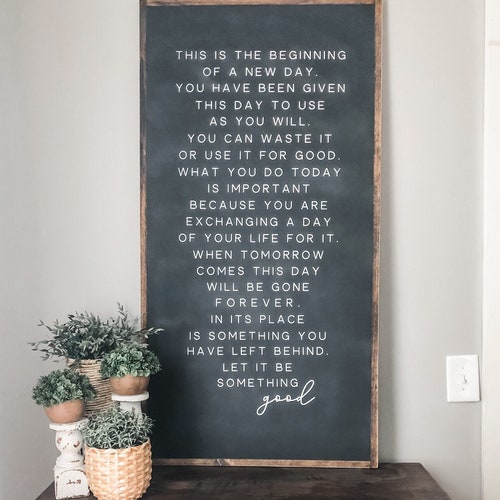 THIS IS THE BEGINNING
OF A NEW DAY.
YOU HAVE BEEN GIVEN
THIS DAY TO USE
AS YOU WILL.
YOU CAN WASTE IT
OR USE IT FOR GOOD.
WHAT YOU DO TODAY
IS IMPORTANT
BECAUSE YOU ARE
EXCHANGING A DAY
OF YOUR LIFE FOR IT.
WHEN TOMORROW
COMES THIS DAY
WILL BE GONE
FOREVER.
IN ITS PLACE
IS SOMETHING YOU
HAVE LEFT BEHIND.
LET IT BE
SOMETHING
good